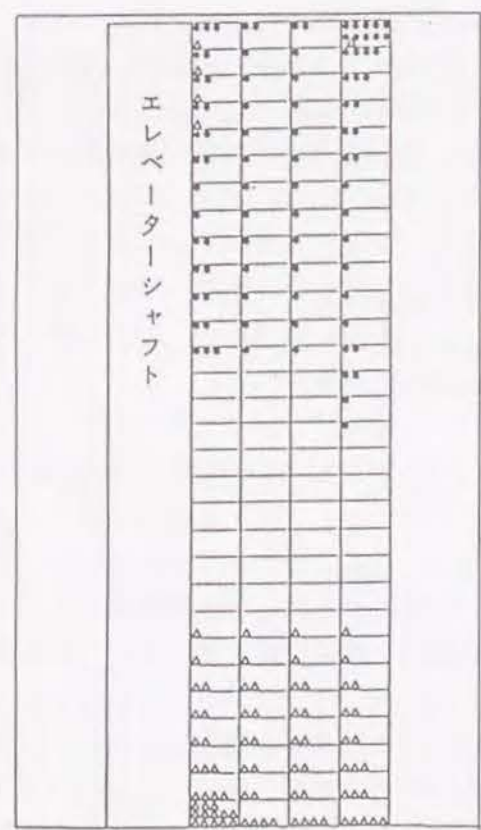 エレベーターシャフト